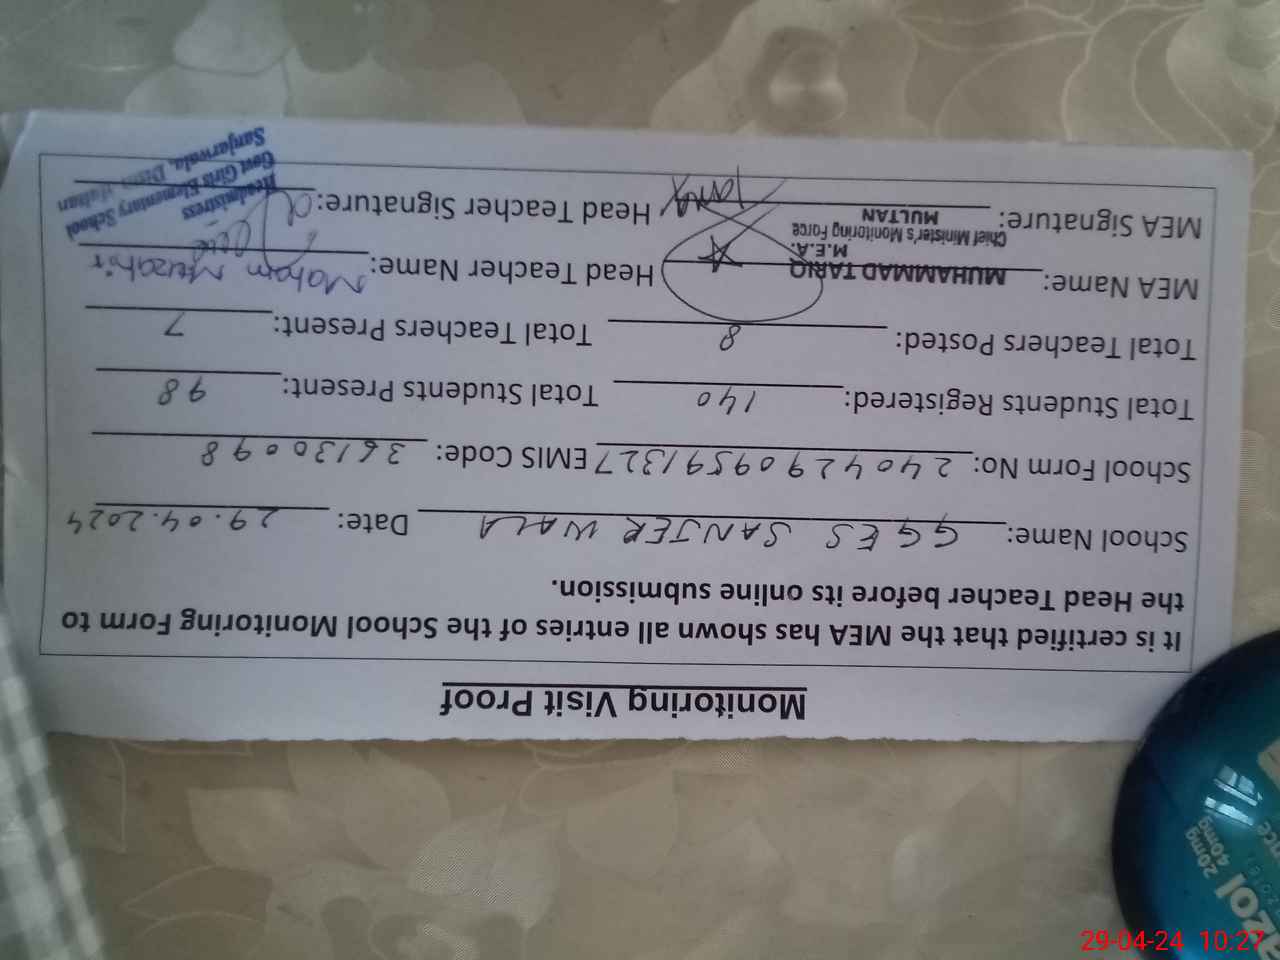 Monitoring Visit Proof
It is certified that the MEA has shown all entries of the School Monitoring Form to
the Head Teacher before its online submission.
School Name: GGES SANJER WALA Date: 29.04.2024
School Form No: 24042909591327 EMIS Code: 36130098
Total Students Registered: 140 Total Students Present: 98
Total Teachers Posted: 8 Total Teachers Present: 7
MEA Name: MUHAMMAD TARIQ Head Teacher Name: Maham Mazahir
M.E.A.
Chief Minister's Monitoring Force
MULTAN
MEA Signature: Head Teacher Signature:
Headmistress
Govt Girls Elementary School
Sanjarwala, Distt Multan
20mg
40mg
zol
29-04-24 10:27